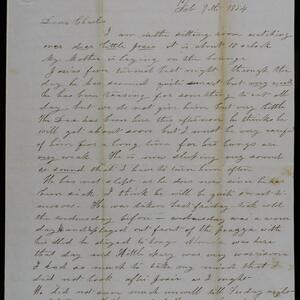 Feb 9th 1854
Dear Charles
I am in the sitting room watching
over dear little Josie it is about 10 o'clock
My Mother is laying on the lounge
Josies fever turned last night through the
day he has seemed quite smart but very weak
he has been teasing for something to eat all
day but we do not give him but very little
The Dr has been here this afternoon he thinks he
will get about soon but I must be very careful
of him for a long time for his lungs are
very weak. He is now sleeping very sound
so sound that I have to turn him often
He has not slept as he does now since he has
been sick. I think he will be quite smart to-
morrow. He was taken last friday sick
the wednesday before wednesday was a warm
day played out front of the piazza with
his sled he stayed to long was here
that day and Hattie was very
I had so much to take my mind that I
did not look after Josie as I ought
He did not seem much unwell till friday night